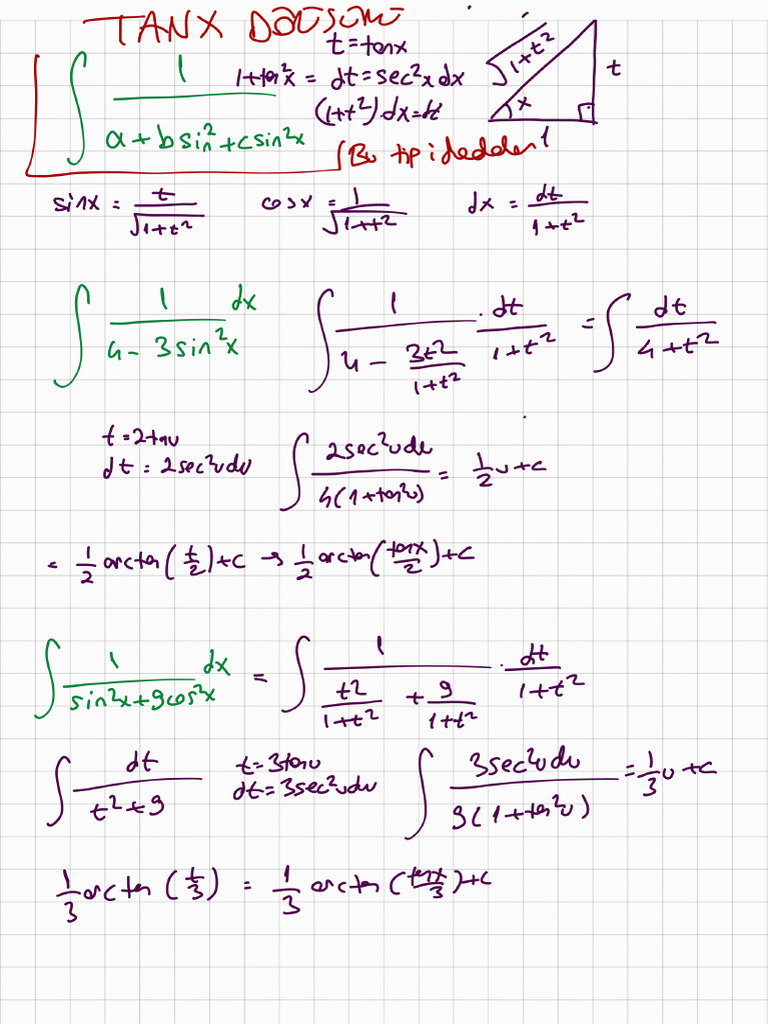 TANX DÖNÜŞÜMÜ
t = tanx
∫ 1/(a + b sin² + c sin²x)
1 + tan²x = dt = sec²x dx
(1+t²).dx = dt
√(1+t²) t x 1
Bu tip ifadeler
sinx = t/√(1+t²) cosx = 1/√(1+t²) dx = dt/(1+t²)
∫ 1/(4 - 3sin²x) dx ∫ 1/(4 - 3t²/(1+t²)) . dt/(1+t²) = ∫ dt/(4+t²)
t = 2tanu
dt = 2sec²u du ∫ 2sec²u du/(4(1+tan²u)) = 1/2 u + c
= 1/2 arctan(t/2) + c → 1/2 arctan(tanx/2) + c
∫ 1/(sin²x + 9cos²x) dx = ∫ 1/(t²/(1+t²) + 9/(1+t²)) . dt/(1+t²)
∫ dt/(t²+9) t = 3tanu
dt = 3sec²u du ∫ 3sec²u du/(9(1+tan²u)) = 1/3 u + c
1/3 arctan(t/3) = 1/3 arctan(tanx/3) + c